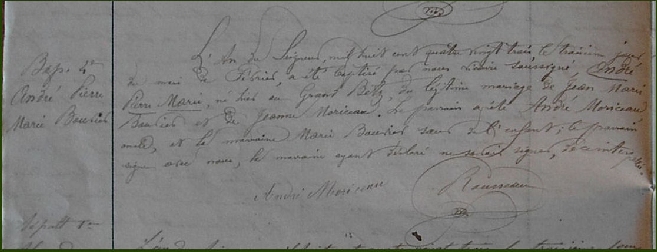 L'An du Seigneur, mil huit cent quatre vingt trois et troisième jour
Bapt. du mois de Février, a été baptisé par nous vicaire soussigné André
André Pierre Pierre Marie, né hier au Grand du légitime mariage de Jean Marie
Marie Baudier Baudier et de Jeanne Moriceau. Le parrain a été André Moriceau
oncle, et la marraine Marie Baudier sœur de l'enfant; le parrain
signe avec nous, la marraine ayant déclaré ne savoir signer, de ce interpellée.
André Moriceau Rousseau
Sépult.
L'an du